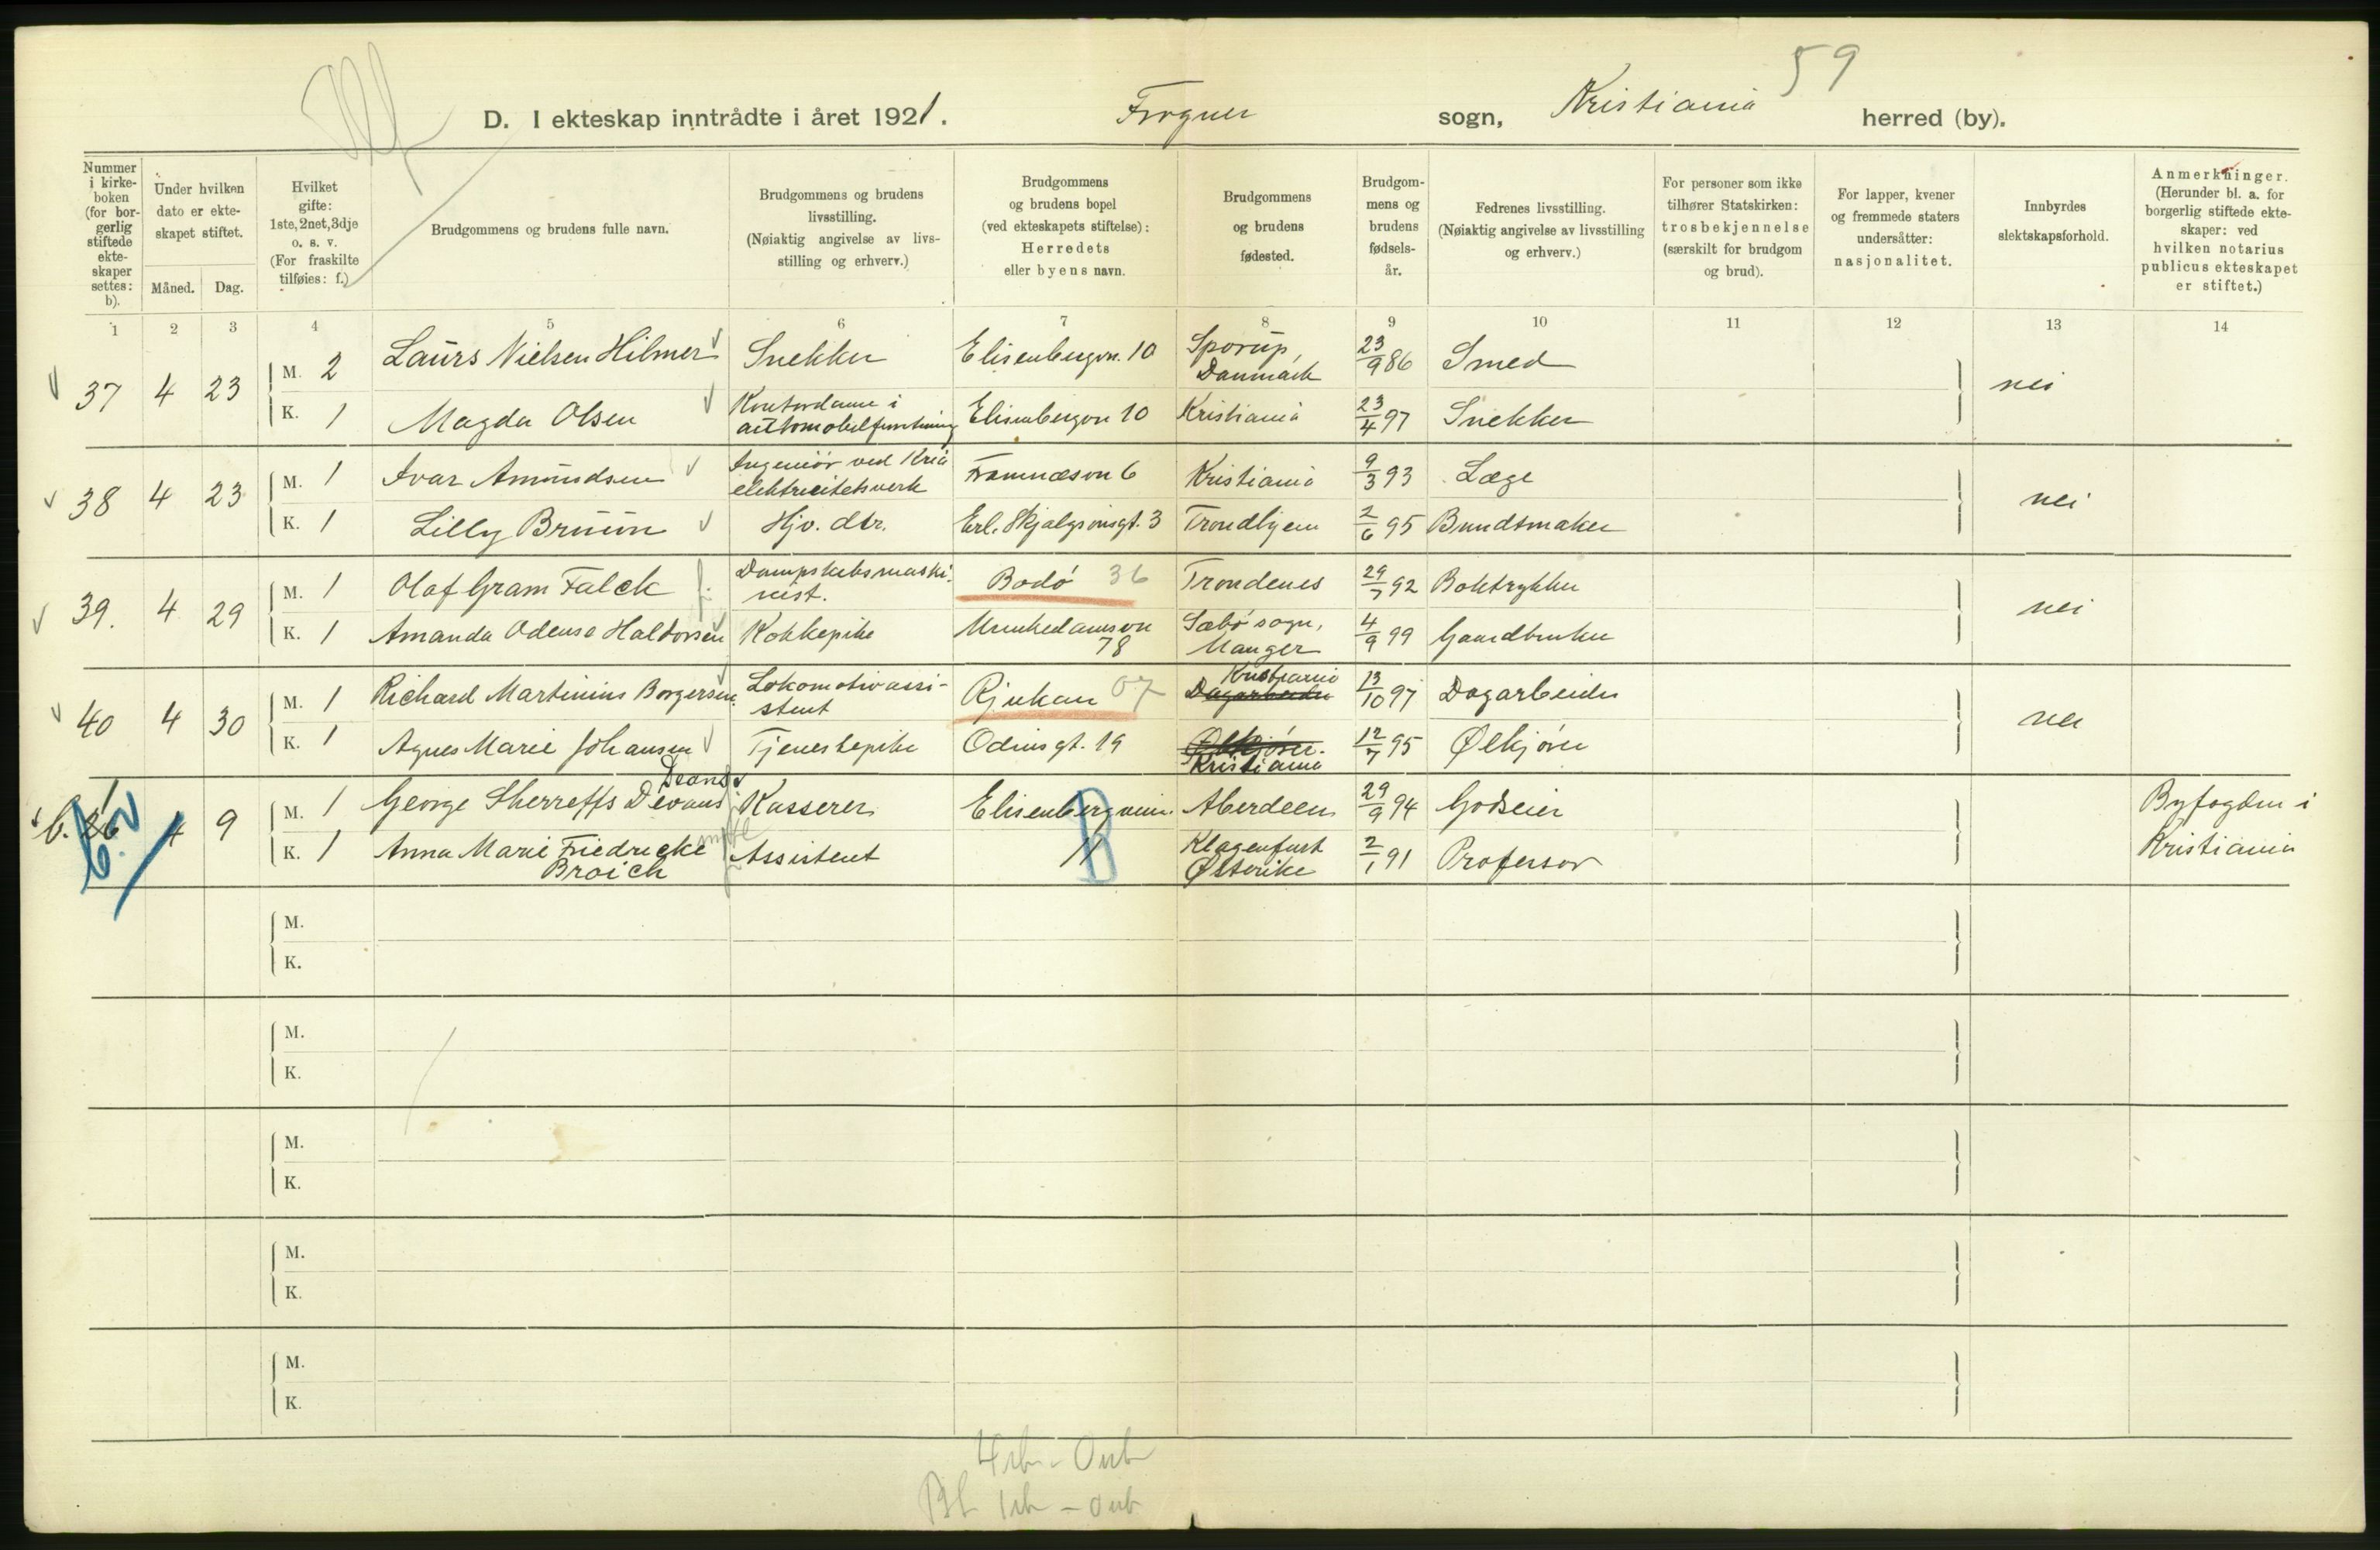 59
D. I ekteskap inntrådte i året 1921. Frogner sogn, Kristiania herred (by).
Nummer i kirke-boken (for bor-gerlig stiftede ekte-skaper settes: b).
Under hvilken dato er ekte-skapet stiftet.
Måned. Dag.
Hvilket gifte: 1ste, 2net, 3dje o. s. v. (For fraskilte tilføies: f.)
Brudgommens og brudens fulle navn.
Brudgommens og brudens livsstilling. (Nøiaktig angivelse av livs-stilling og erhverv.)
Brudgommens og brudens bopel (ved ekteskapets stiftelse): Herredets eller byens navn.
Brudgommens og brudens fødested.
Brudgom-mens og brudens fødsels-år.
Fedrenes livsstilling. (Nøiaktig angivelse av livsstilling og erhverv.)
For personer som ikke tilhører Statskirken: trosbekjennelse (særskilt for brudgom og brud).
For lapper, kvener og fremmede staters undersåtter: nasjonalitet.
Innbyrdes slektskapsforhold.
Anmerkninger. (Herunder bl. a. for borgerlig stiftede ekte-skaper: ved hvilken notarius publicus ekteskapet er stiftet.)
1 2 3 4 5 6 7 8 9 10 11 12 13 14
37 4 23 M. 2 Laurs Nielsen Hilmer Snekker Elisenbergvn. 10 Sporup, Danmark 23/9 86 Smed nei
K. 1 Magda Olsen Kontordame i automobilforretning Elisenbergvn 10 Kristiania 23/4 97 Snekker
38 4 23 M. 1 Ivar Amundsen Ingeniør ved Kria elektricitetsverk Framnæsvn 6 Kristiania 9/3 93 Læge nei
K. 1 Lilly Bruun Hjv. dtr. Erl. Skjalgssønsgt. 3 Trondhjem 2/6 95 Bundtmaker
39. 4 29 M. 1 Olaf Gram Falck Dampskibsmaskinist. Bodø 36 Trondenes 29/7 92 Boktrykker nei
K. 1 Amanda Odense Haldorsen Kokkepike Munkedamsvn 78 Sæbø sogn, Manger 4/9 99 Gaardbruker
40 4 30 M. 1 Richard Martinius Borgersen Lokomotivassi-stent Rjukan 07 Kristiania Dagarbeider 13/10 97 Dagarbeider nei
K. 1 Agnes Marie Johansen Tjenestepike Odinsgt. 19 Ølkjører. Kristiania 12/7 95 Ølkjører
b. 26 4 9 M. 1 George Sherreffs Devans Deans Kasserer Elisenbergveien Aberdeen 29/9 94 Godseier Byfogden i
K. 1 Anna Marie Friedricke Broich Assistent 11 B Klagenfurt Østerike 2/1 91 Professor Kristiania
M.
K.
M.
K.
M.
K.
M.
K.
M.
K.
4 ib - 0 ub
Bl 1 ib - 0 ub